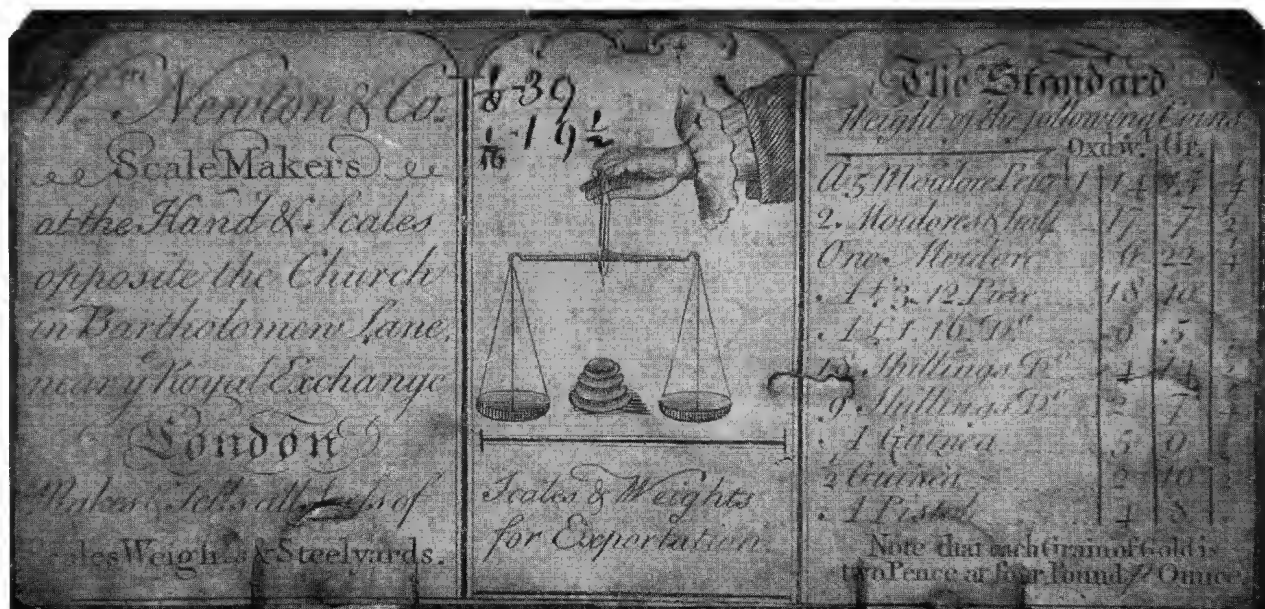 Wm. Newton & Co.
Scale Makers
at the Hand & Scales
opposite the Church
in Bartholomew Lane,
near ye Royal Exchange
London
Makes & Sells all of
Weights & Steelyards.
1/8 39
1/16 19 1/2
Scales & Weights
for Exportation.
The Standard
Weight of the following Coins
Oz dw. Gr.
A 5 Moidore Piece 1 14 1/4
2. Moidores & half 17 7 1/2
One Moidore 6 22 1/4
A £3.12 Piece 18 10
A £1.16 Do 9 5
18 Shillings Do 4 14
9 Shillings Do 2 7
1 Guinea 5 9
1/2 Guinea 2 16
1 Pistol 4 8
Note that each Grain of Gold is
two Pence at four Pound pr Ounce